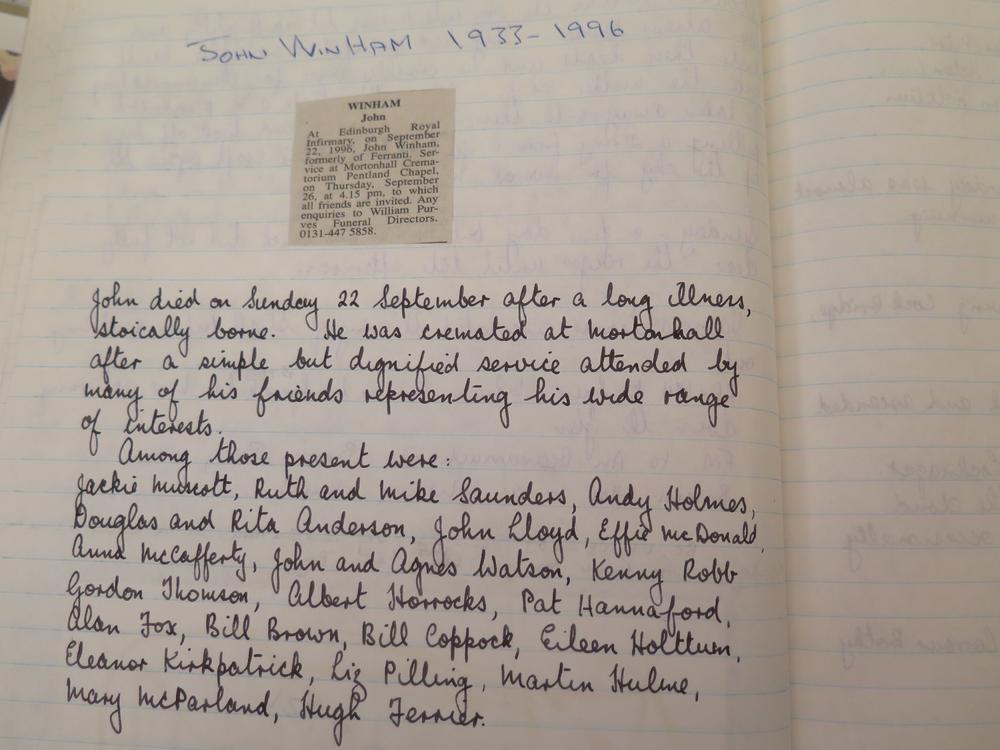 JOHN WINHAM 1933-1996
WINHAM
John
At Edinburgh Royal
Infirmary, on September
22, 1996, John Winham,
formerly of Ferranti. Ser-
vice at Mortonhall Crema-
torium Pentland Chapel,
on Thursday, September
26, at 4.15 pm, to which
all friends are invited. Any
enquiries to William Pur-
ves Funeral Directors.
0131-447 5858.
John died on Sunday 22 September after a long illness,
stoically borne. He was cremated at Mortonhall
after a simple but dignified service attended by
many of his friends representing his wide range
of interests.
Among those present were:
Jackie Muscott, Ruth and Mike Saunders, Andy Holmes,
Douglas and Rita Anderson, John Lloyd, Effie McDonald,
Anna McCafferty, John and Agnes Watson, Kenny Robb
Gordon Thomson, Albert Horrocks, Pat Hannaford,
Alan Fox, Bill Brown, Bill Coppock, Eileen Holttum,
Eleanor Kirkpatrick, Liz Pilling, Martin Hulme,
Mary McParland, Hugh Ferrier.